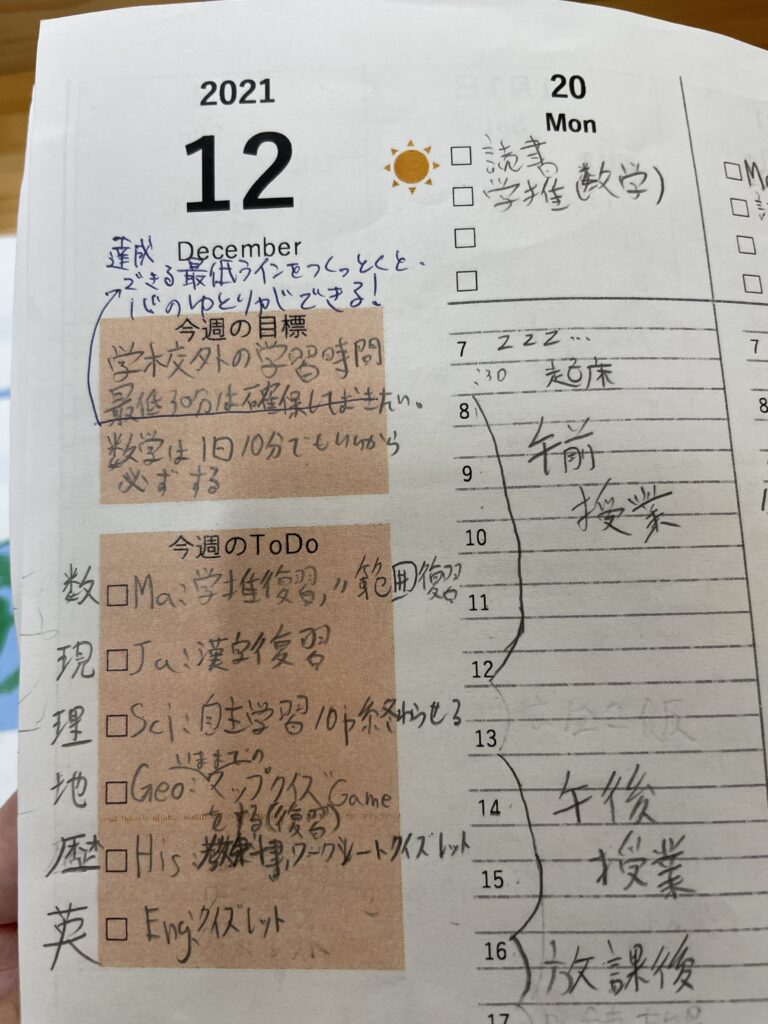 2021
12
December
達成
できる最低ラインをつくっとくと、
心のゆとりができる!
今週の目標
学校外の学習時間
最低30分は確保しておきたい。
数学は1日10分でもいいから
必ずする
今週のToDo
数 □Ma:学推復習,〃範囲復習
現 □Ja:漢字復習
理 □Sci:自主学習10p終わらせる
いままでの
地 □Geo:マップクイズGame
をする(復習)
歴 □His: ワークシートクイズレット
英 □ Eng:クイズレット
20
Mon
□ 読書
□ 学推(数学)
□
□
7 zzz...
:30 起床
8
午前
9
授業
10
11
12
13
14 午後
15 授業
16 放課後
17
□Ma
□
□
□
7
8